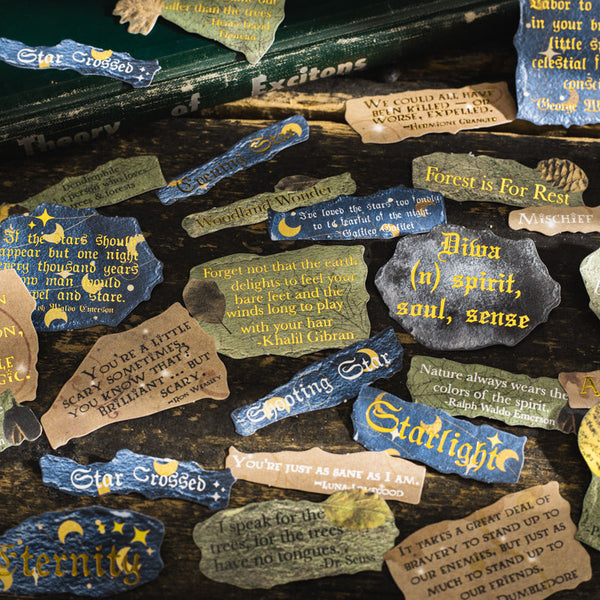 aller than the trees
-Henry David
Thoreau
Star Crossed
Labor to
in your br
little s
celestial f
consci
George Wa
Theory of Excitons
We could all have
been killed — or
worse, expelled.
~Hermione Granger
Evening St
Dendrophile
forests
Woodland Wonder
I've loved the stars too fondly
to be fearful of the night.
Galileo Galilei
Forest is For Rest
Mischief
If the stars should
appear but one night
every thousand years
how man would
vel and stare.
Ralph Waldo Emerson
Diwa
(n) spirit,
soul, sense
Forget not that the earth
delights to feel your
bare feet and the
winds long to play
with your hair
-Khalil Gibran
on,
le
gic.
You're a little
scary sometimes,
you know that?
Brilliant ... but
scary.
~Ron Weasley
Shooting Star
Nature always wears the
colors of the spirit.
-Ralph Waldo Emerson
A
Starlight
Star Crossed
You're just as sane as I am.
~Luna Lovegood
Eternity
I speak for the
trees, for the trees
have no tongues.
-Dr. Seuss
It takes a great deal of
bravery to stand up to
our enemies, but just as
much to stand up to
our friends.
Dumbledore